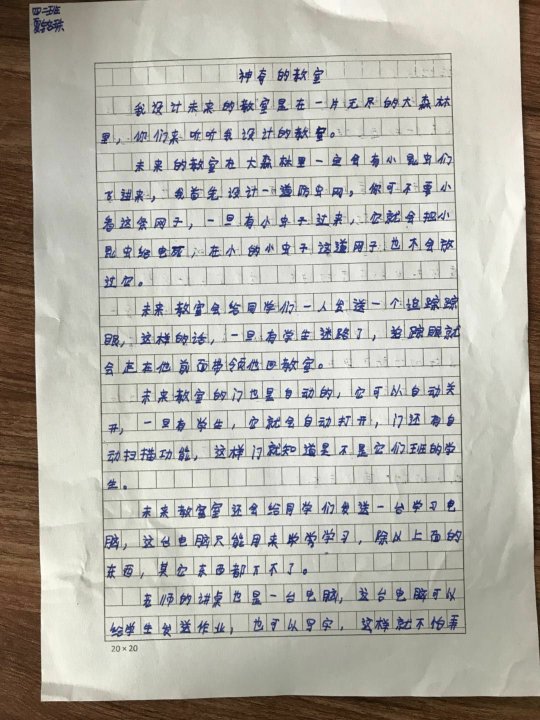 四二班
神奇的教室
我设计未来的教室是在一片无尽的大森林
里，你们来听听我设计的教室。
未来的教室在大森林里一定会有小昆虫们
飞进来，我首先设计一道防虫网，你可不要小
看这条网子，一旦有小虫子过来，它就会把小
昆虫给电死，在小的小虫子这道网子也不会放
过它。
未来教室会给同学们一人发送一个追踪踪
眼，这样的话，一旦有学生迷路了，追踪眼就
会在他前面带领他回教室。
未来教室的门也是自动的，它可以自动关
开，一旦有学生，它就会自动打开，门还有自
动扫描功能，这样门就知道是不是它们班的学
生。
未来教室室还会给同学们发送一台学习电
脑，这台电脑只能用来学习，除以上面的
东西，其它东西都下不了。
老师的讲桌也是一台电脑，这台电脑可以
给学生发送作业，也可以写字，这样就不怕弄
20×20